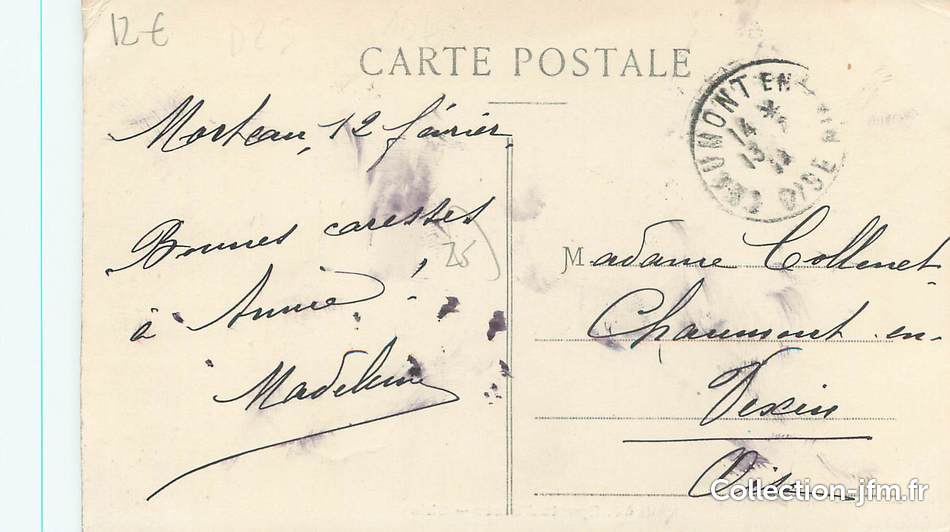 12 €
CARTE POSTALE
CHAUMONT EN
14
13
OISE
Morteau, 12 février.
Bonnes caresses
à Annie !
Madeleine
25
Madame Collenet
Chaumont en-
Vexin
Oise
Collection-jfm.fr